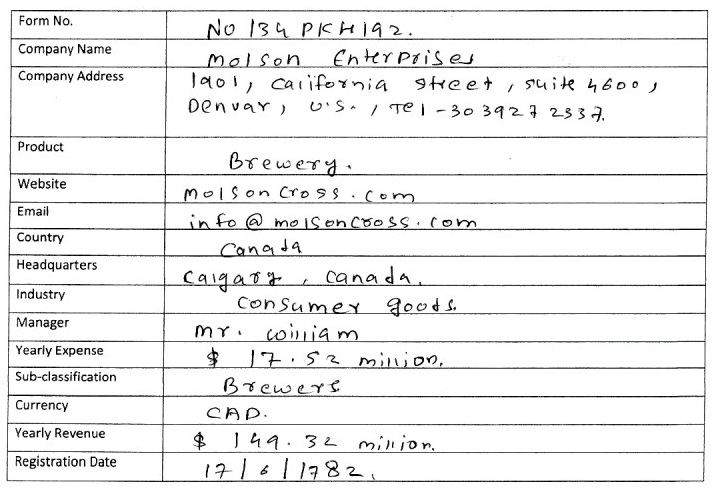 Form No. No 134 PKH192.
Company Name Molson Enterprises
Company Address 1901, California street, suite 4600,
Denvar, U.S., Tel - 3039272337.
Product Brewery.
Website molsoncross.com
Email info@molsoncross.com
Country Canada
Headquarters Calgary, Canada.
Industry Consumer goods.
Manager Mr. William
Yearly Expense $ 17.52 million.
Sub-classification Brewers
Currency CAD.
Yearly Revenue $ 149.32 million.
Registration Date 17/6/1782.